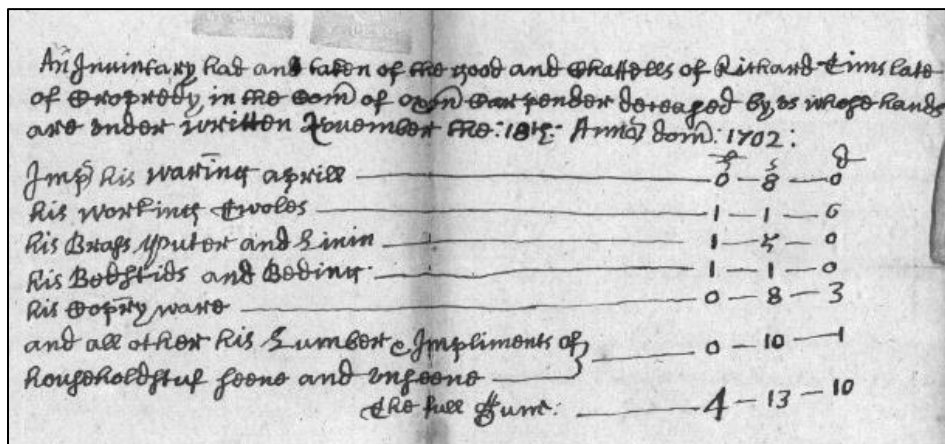 An Inuintary had and taken of the good and Chattells of Richard Tims late
of Cropredy in the Com̄ of oxōn Carpender deceased by vs whose hands
are vnder written November the: 18th: Anno dom̄: 1702:
£ s d
Imp̄ his waring aprill — 0 — 8 — 0
his working Twoles — 1 — 1 — 6
his Brass puter and Linin — 1 — 5 — 0
his Bedstids and Beding — 1 — 1 — 0
his Copery ware — 0 — 8 — 3
and all other his Lumber & Impliments of
householdstuf seene and vnseene — 0 — 10 — 1
The full Sum: — 4 — 13 — 10